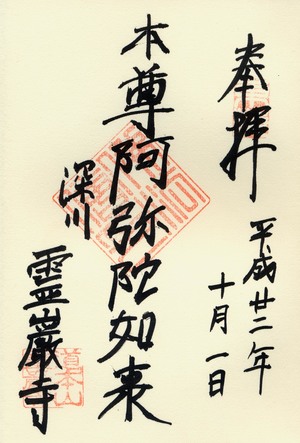 奉拝
平成廿二年
十月一日
本尊阿弥陀如来
深川
霊巌寺